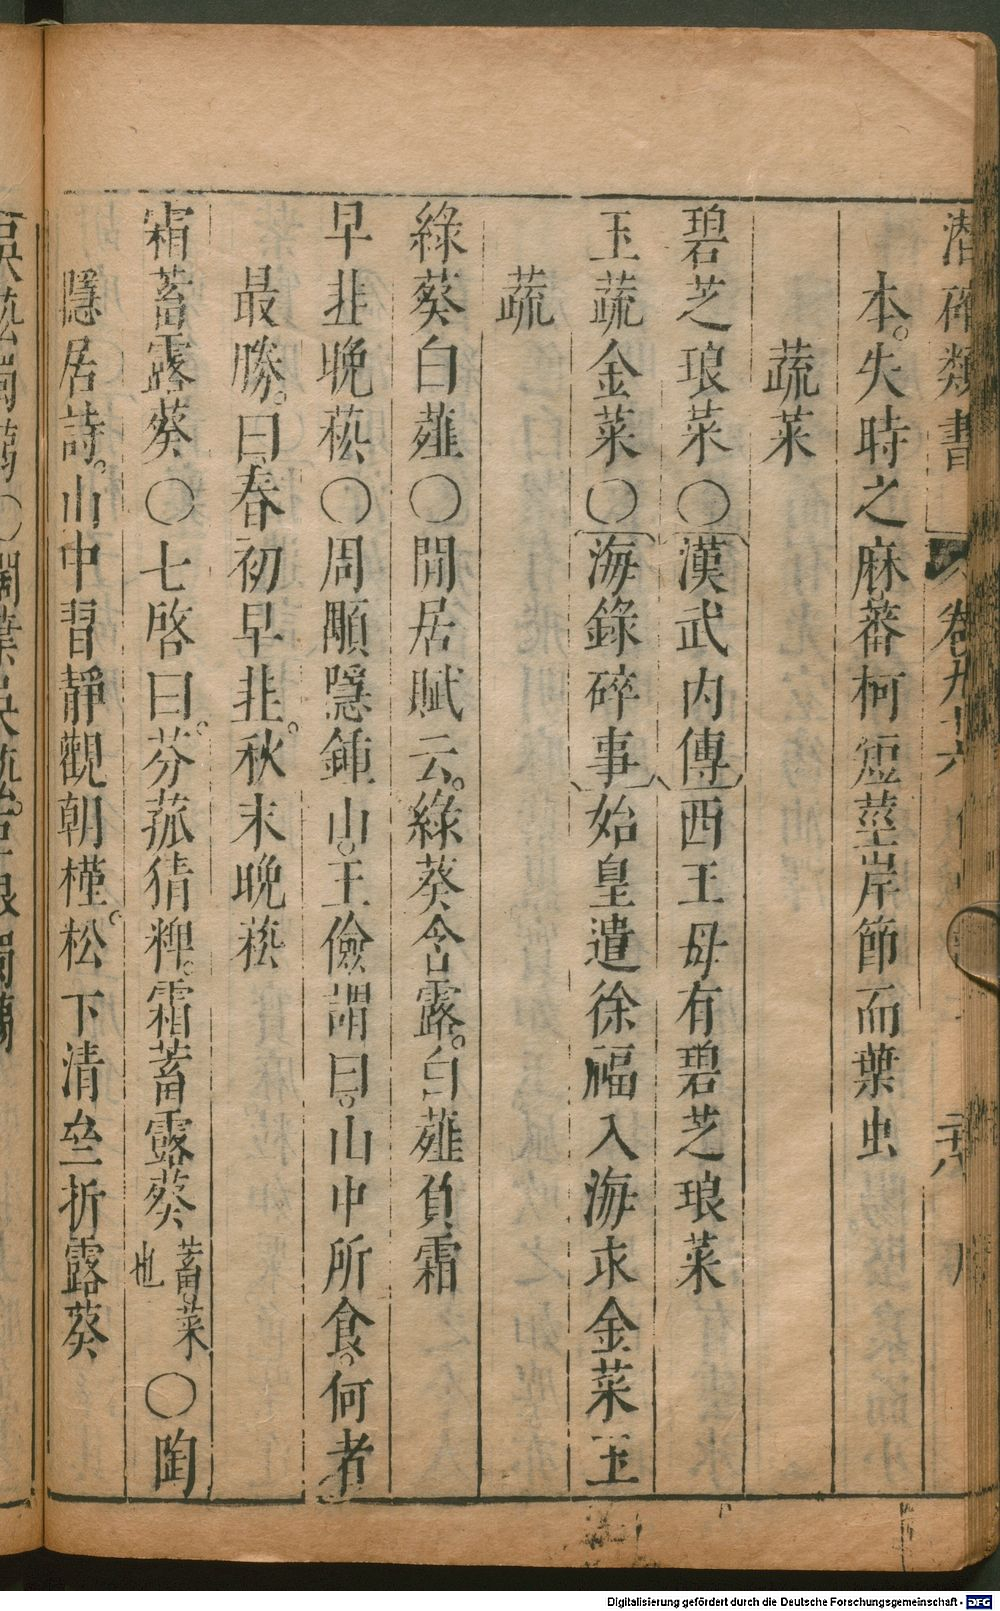 潛確類書 卷九十六
本。失時之麻蕃柯短莖岸節而葉虫
蔬菜
碧芝琅菜〇漢武內傳西王母有碧芝琅菜
玉蔬金菜〇海錄碎事始皇遣徐福入海求金菜玉
蔬
綠葵白薤〇閒居賦云。綠葵含露。白薤負霜
早韭晚菘〇周顒隱鍾山。王儉謂曰。山中所食。何者
最勝。曰春初早韭。秋末晚菘
霜蓄露葵〇七啓曰。芬菰猜粺。霜蓄露葵 蓄。菜也 〇陶
隱居詩。山中習靜觀朝槿。松下清𡊮折露葵
Digitalisierung gefördert durch die Deutsche Forschungsgemeinschaft - DFG